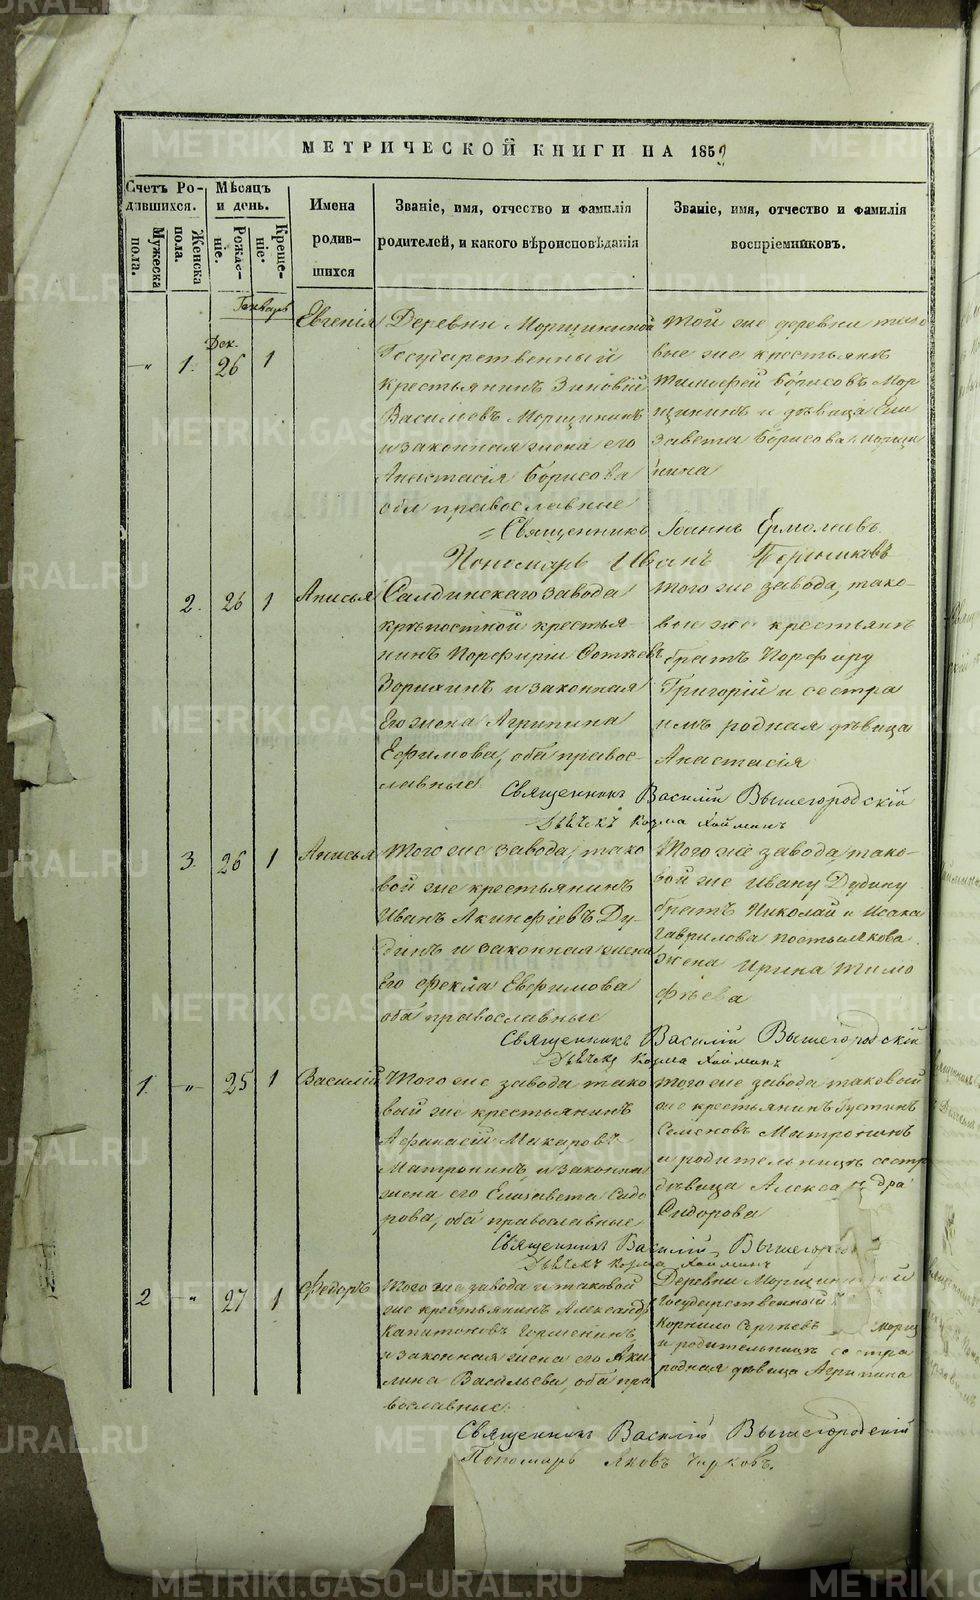 МЕТРИЧЕСКОЙ КНИГИ НА 1859
Счетъ Родившихся.
Мѣсяцъ и день.
Имена родившихся
Званіе, имя, отчество и фамилія родителей, и какого вѣроисповѣданія
Званіе, имя, отчество и фамилія воспріемниковъ.
Мужеска пола.
Женска пола.
Рожденіе.
Крещеніе.
Генварь
Дек.
" 1. 26 1
Евгенія
Деревни Морщининой
Государственный
крестьянинъ Зиновій
Василіевъ Морщининъ
и законная жена его
Анастасія Борисова
оба православные
Той же деревни тако
вые же крестьянъ
Тимофей Борисовъ Мор
щининъ и дѣвица Ели
завета Борисова Морщи
нина
Священникъ Іоаннъ Ермолаевъ
Пономарь Иванъ
2. 26 1
Анисья
Салдинскаго завода
крѣпостной крестья-
нинъ Порфирій
Зорихинъ и законная
Его жена Агрипина
Ефимова, оба право-
славные
Того же завода, тако-
вые же крестьянъ
братъ Порфиру
Григорій и сестра
имъ родная дѣвица
Анастасія
Священникъ Василій Вышегородскій
Дьячекъ Козма
3. 26 1
Анисья
Того же завода, тако
вой же крестьянинъ
Иванъ Акинфіевъ Ду-
динъ и законная жена
Его Фекла Евфимова
оба православные
Того же завода, тако-
вой же Ивану Дудину
братъ Николай и Исака
Гаврилова Постылякова
жена Ирина Тимо
фѣева
Священникъ Василій Вышегородскій
Дьячекъ Козма
1. " 25 1
Василій
Того же завода тако
вый же крестьянинъ
Афанасій Макаровъ
Матронинъ, и законная
жена его Елизавета Сидо
рова, оба православные
Того же завода таковый
же крестьянинъ Густинъ
Семеновъ Матронинъ
и родительницѣ сестра
дѣвица Александра
Сидорова
Священникъ Василій Вышегород
Дьячекъ Козма
2 " 27 1
Федоръ
Того же завода и таковой
же крестьянинъ Александръ
Капитоновъ
и законная жена его Аки
лина Васильева, оба пра
вославные.
Деревни Морщининой
Государственный
Корнило Сергѣевъ Морщ
и родительницѣ сестра
родная дѣвица Агрипина
Священникъ Василій Вышегородскій
Пономарь Яковъ Чирковъ.
METRIKI.GASO-URAL.RU